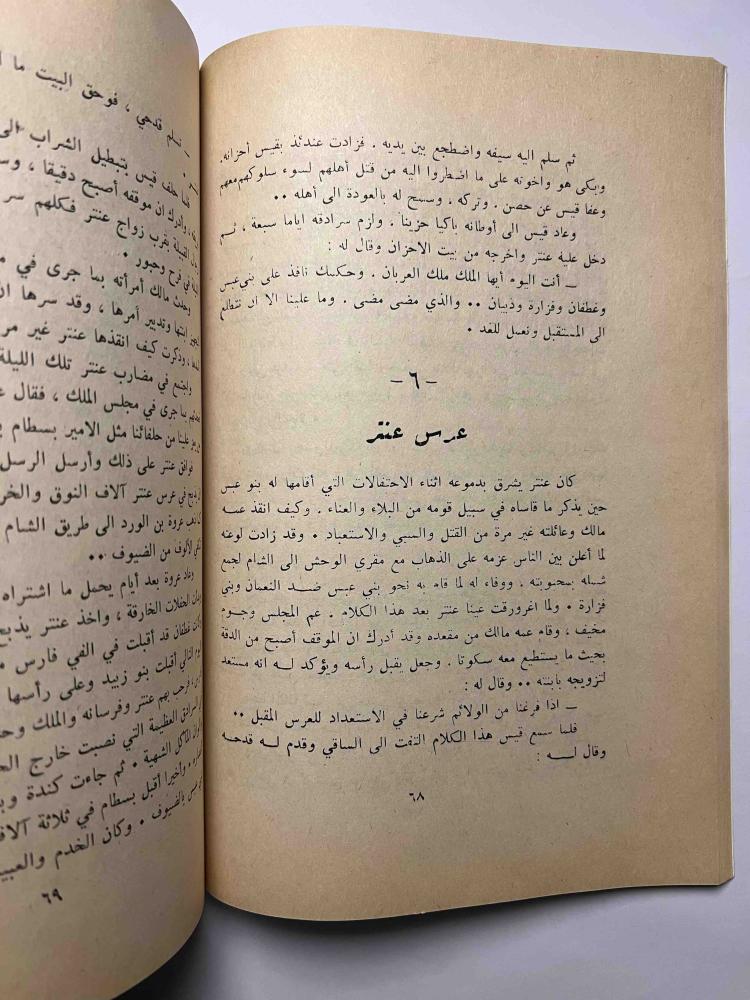 ثم سلم اليه سيفه واضطجع بين يديه . فزادت عندئذ بقيس أحزانه.
وبكى هو واخوته على ما اضطروا اليه من قتل أهلهم لسوء سلوكهم معهم
وعفا قيس عن حصن . وتركه ، وسمح له بالعودة الى أهله ..
وعاد قيس الى أوطانه باكيا حزينا . ولزم سرادقه اياما سبعة ، ثم
دخل عليه عنتر واخرجه من بيت الاحزان وقال له :
— أنت اليوم أيها الملك ملك العربان . وحكمك نافذ على بني عبس
وغطفان وفزارة وذبيان .. والذي مضى مضى . وما علينا الا ان نتطلع
الى المستقبل ونعمل للغد .
— ٦ —
عرس عنتر
كان عنتر يشرق بدموعه اثناء الاحتفالات التي أقامها له بنو عبس
حين يذكر ما قاساه في سبيل قومه من البلاء والعناء . وكيف انقذ عمه
مالك وعائلته غير مرة من القتل والسبي والاستعباد . وقد زادت لوعته
لما أعلن بين الناس عزمه على الذهاب مع مقري الوحش الى الشام لجمع
شمله بمحبوبته . ووفاء له لما قام به نحو بني عبس ضد النعمان وبني
فزارة . ولما اغرورقت عينا عنتر بعد هذا الكلام . عم المجلس وجوم
مخيف ، وقام عمه مالك من مقعده وقد أدرك ان الموقف أصبح من الدقة
بحيث ما يستطيع معه سكوتا . وجعل يقبل رأسه ويؤكد له انه مستعد
لتزويجه بابنته .. وقال له :
— اذا فرغنا من الولائم شرعنا في الاستعداد للعرس المقبل ..
فلما سمع قيس هذا الكلام التفت الى الساقي وقدم له قدحه
وقال له :
٦٨
— تسلم قدحي ، فوحق البيت ما
فلما حلف قيس بتبطيل الشراب الى
وأدرك ان موقفه أصبح دقيقا ،
القبيلة بقرب زواج عنتر فكلهم سر
في فرح وحبور .
وحدث مالك أمرأته بما جرى في
ابنتها وتدبير أمرها ، وقد سرها
وذكرت كيف انقذها عنتر غير
واجتمع في مضارب عنتر تلك الليلة
بما جرى في مجلس الملك ، فقال
علينا من حلفائنا مثل الامير بسطام
فوافق عنتر على ذلك وأرسل الرسل
في عرس عنتر آلاف النوق
ذهب عروة بن الورد الى طريق الشام
الألوف من الضيوف ..
وعاد عروة بعد أيام يحمل ما اشتراه
الحفلات الخارقة ، واخذ عنتر
غطفان قد أقبلت في الفي فارس
التالي أقبلت بنو زبيد وعلى رأسها
فرحب بهم عنتر وفرسانه والملك
السرادق العظيمة التي نصبت خارج
المآكل الشهية . ثم جاءت كندة
وأخيرا أقبل بسطام في ثلاثة
بالضيوف . وكان الخدم
٦٩